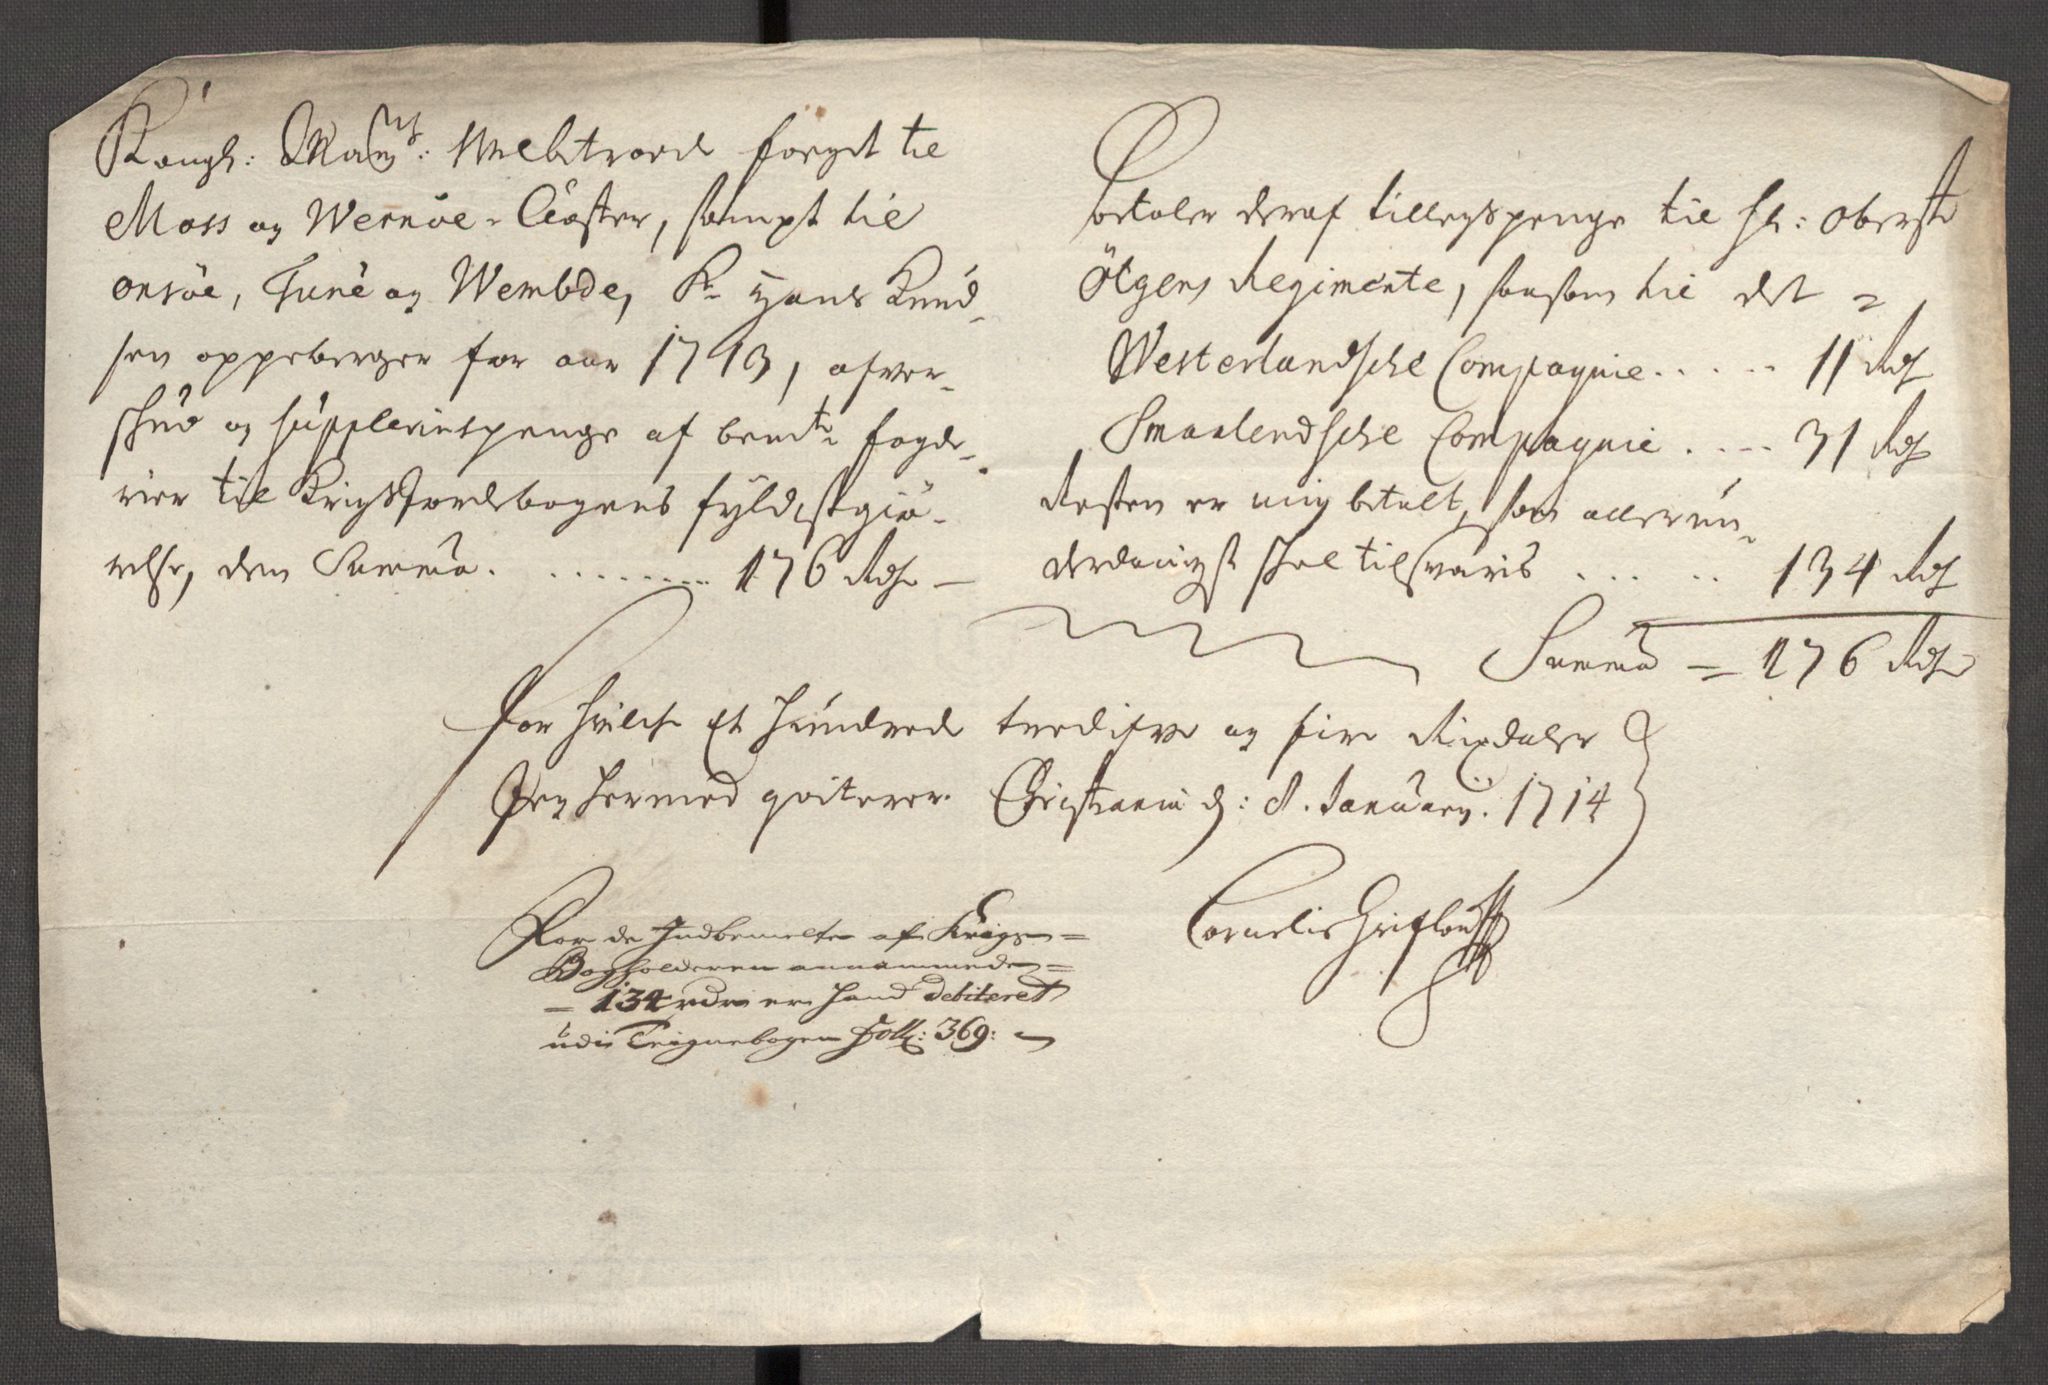 Kongl: May:ts Velbetroede foget til
Moss og Wernöe-Closter, sampt til
Onsöe, Tune og Wembde, Sr Hans Knud-
sen oppeberger for aar 1713, ofver-
skud og supplerings penge af bemte fogde-
rier til Krigsfordbogens fyldistgiö-
relse, den Summa. . . . . . . . . . 176 Rdr —
Betaler deraf tillegspenge til Hr: Oberste
Ötgens Regimente, saasom til det =
Westerlandsche Compagnie . . . . . 11 Rdr
Smaalendsche Compagnie . . . . 31 Rdr
Resten er mig betalt, som allerun-
derdanigst skal tilsvaris . . . . . 134 Rdr
Summa = 176 Rdr
For hvilche Et hundrede tredifve og fire Rixdaler
Jeg hermed qviterer. Christiania d: 8. January. 1714
Cornelis
For de Indbemelte af Krigs=
Bogholderen annammede =
= 134 rdr er hand debiteret
udi Tegnebogen Foll: 369: